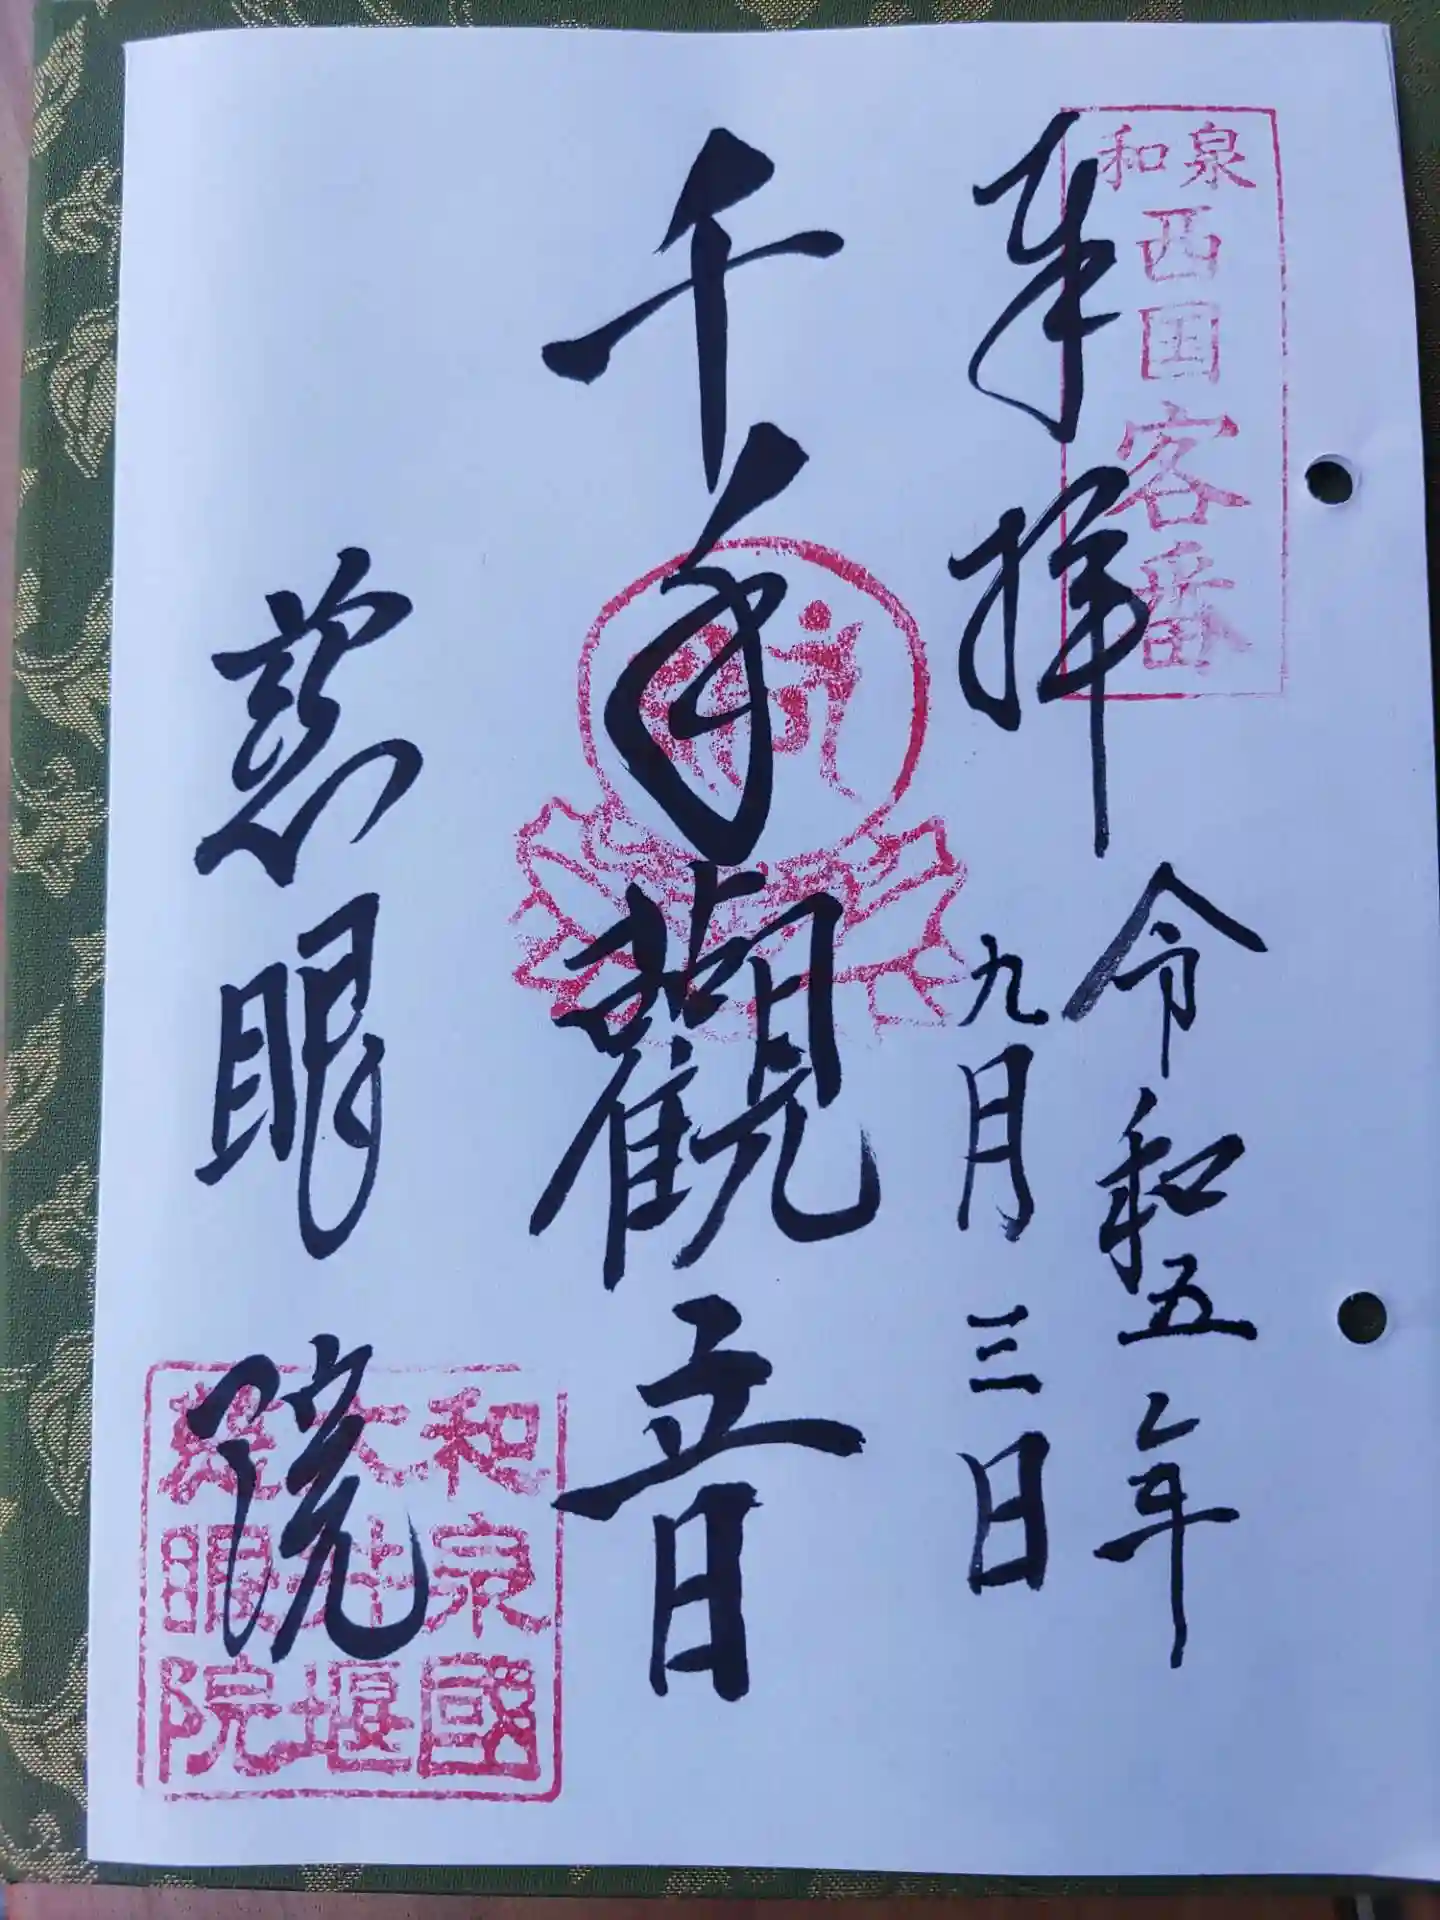 和泉
西国客番
奉拝
令和五年
九月三日
千手觀音
慈眼院
和泉國
大井堰
慈眼院